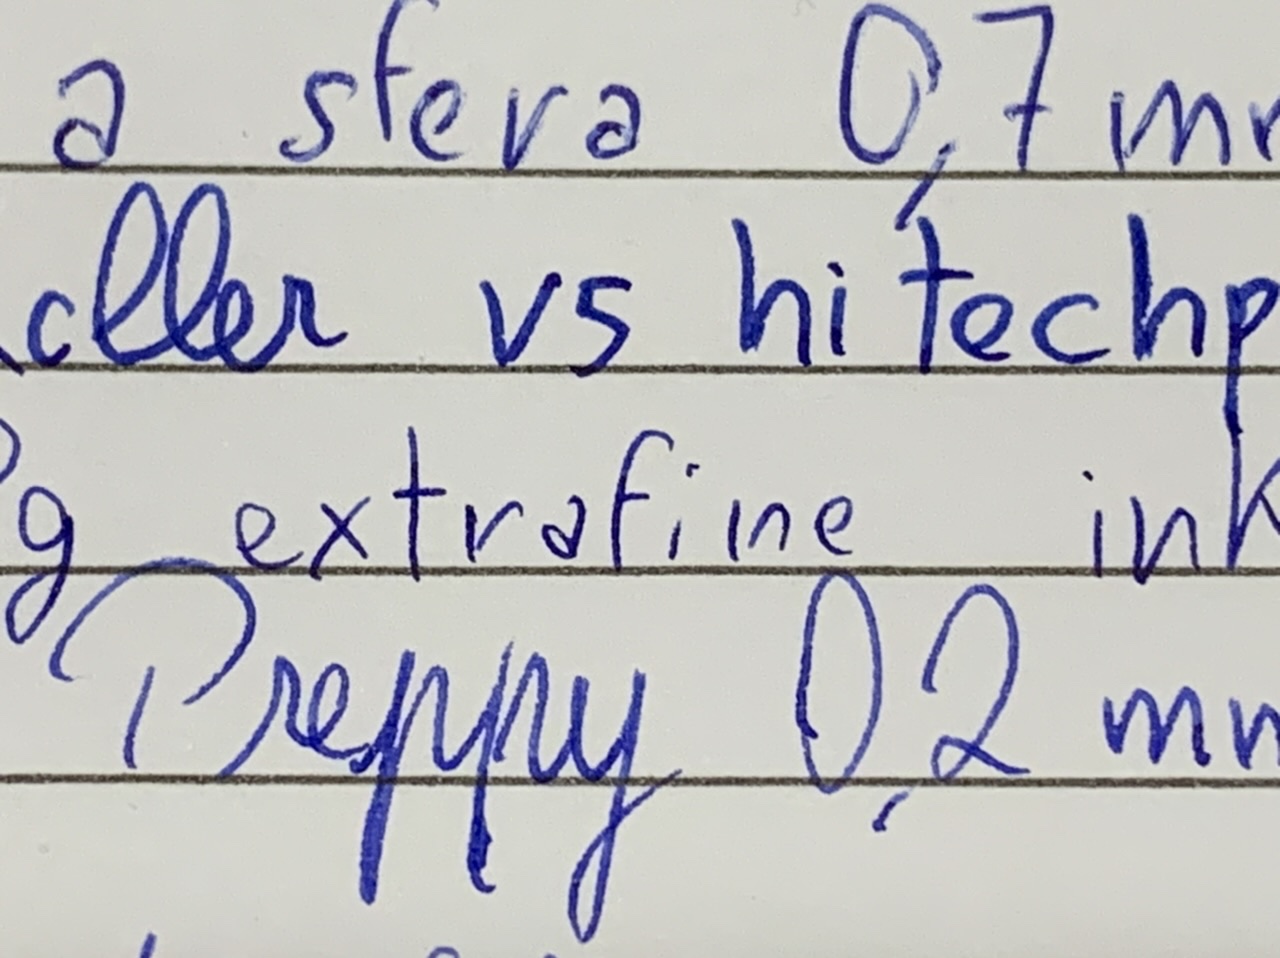 a sfera 0,7 mm
oller vs hi techp
g extrafine ink
Preppy 0,2 mm